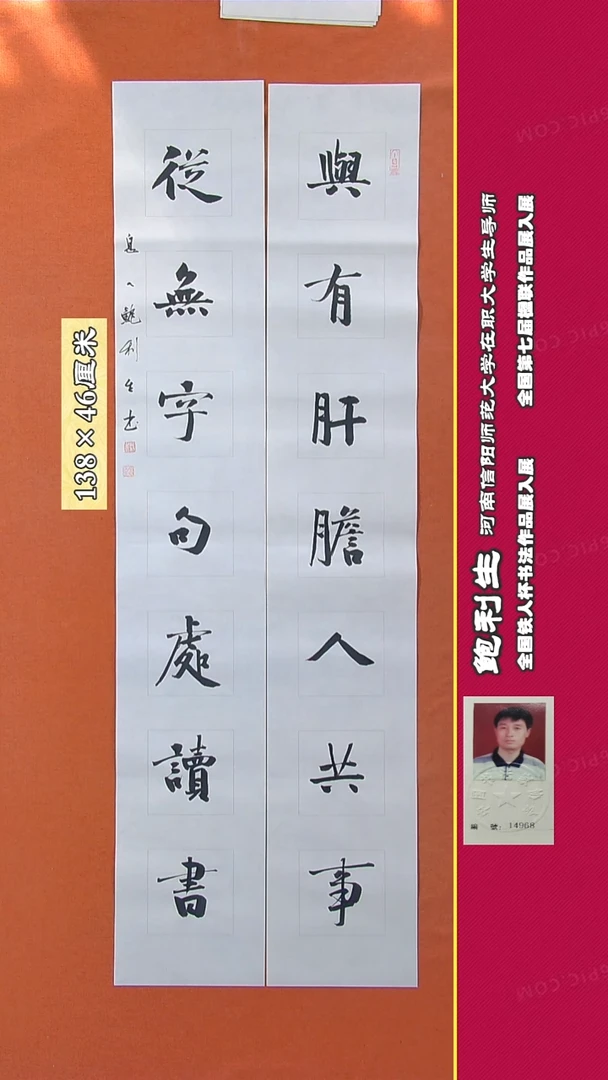 與有肝膽人共事
從無字句處讀書
鮑利生书
138×46厘米
鲍利生
河南信阳师范大学在职大学生导师
全国铁人杯书法作品展入展
全国第七届楹联作品展入展
14968